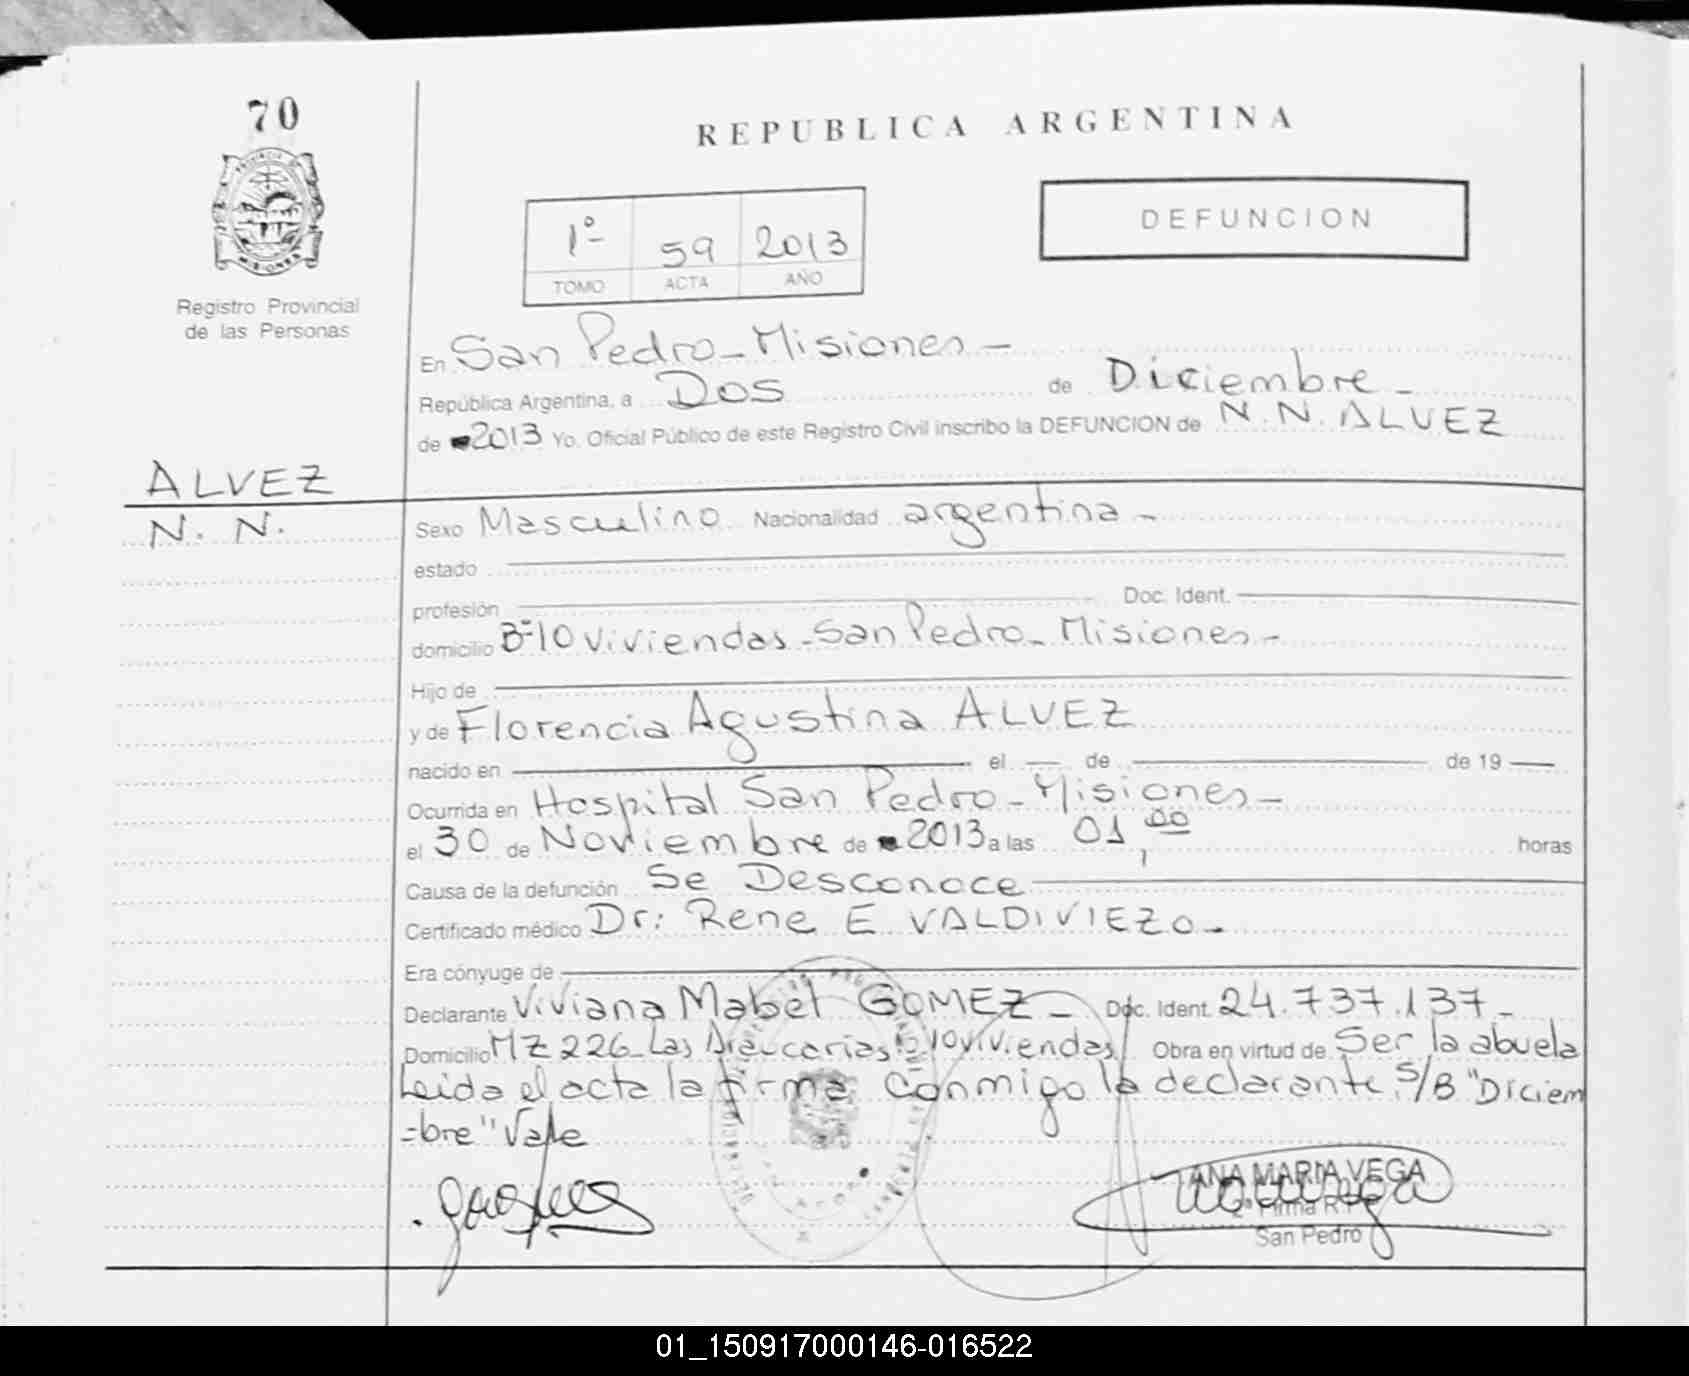 70
REPUBLICA ARGENTINA
PROVINCIA DE
MISIONES
Registro Provincial
de las Personas
1º 59 2013
TOMO ACTA AÑO
DEFUNCION
En San Pedro - Misiones -
República Argentina, a Dos de Diciembre -
de 2013 Yo. Oficial Público de este Registro Civil inscribo la DEFUNCION de N. N. ALVEZ
ALVEZ
N. N.
Sexo Masculino Nacionalidad argentina -
estado
profesión Doc. Ident.
domicilio Bº 10 Viviendas - San Pedro - Misiones -
Hijo de
y de Florencia Agustina ALVEZ
nacido en el de de 19
Ocurrida en Hospital San Pedro - Misiones -
el 30 de Noviembre de 2013 a las 01,00 horas
Causa de la defunción Se Desconoce
Certificado médico Dr: Rene E VALDIVIEZO -
Era cónyuge de
Declarante Viviana Mabel GOMEZ - Doc. Ident. 24.737.137 -
Domicilio MZ 226 - Las Araucarias 10 viviendas Obra en virtud de Ser la abuela
Leida el acta la firma conmigo la declarante S/B "Diciem
=bre" Vale
ANA MARIA VEGA
2ª Firma R.P.
San Pedro
01_150917000146-016522